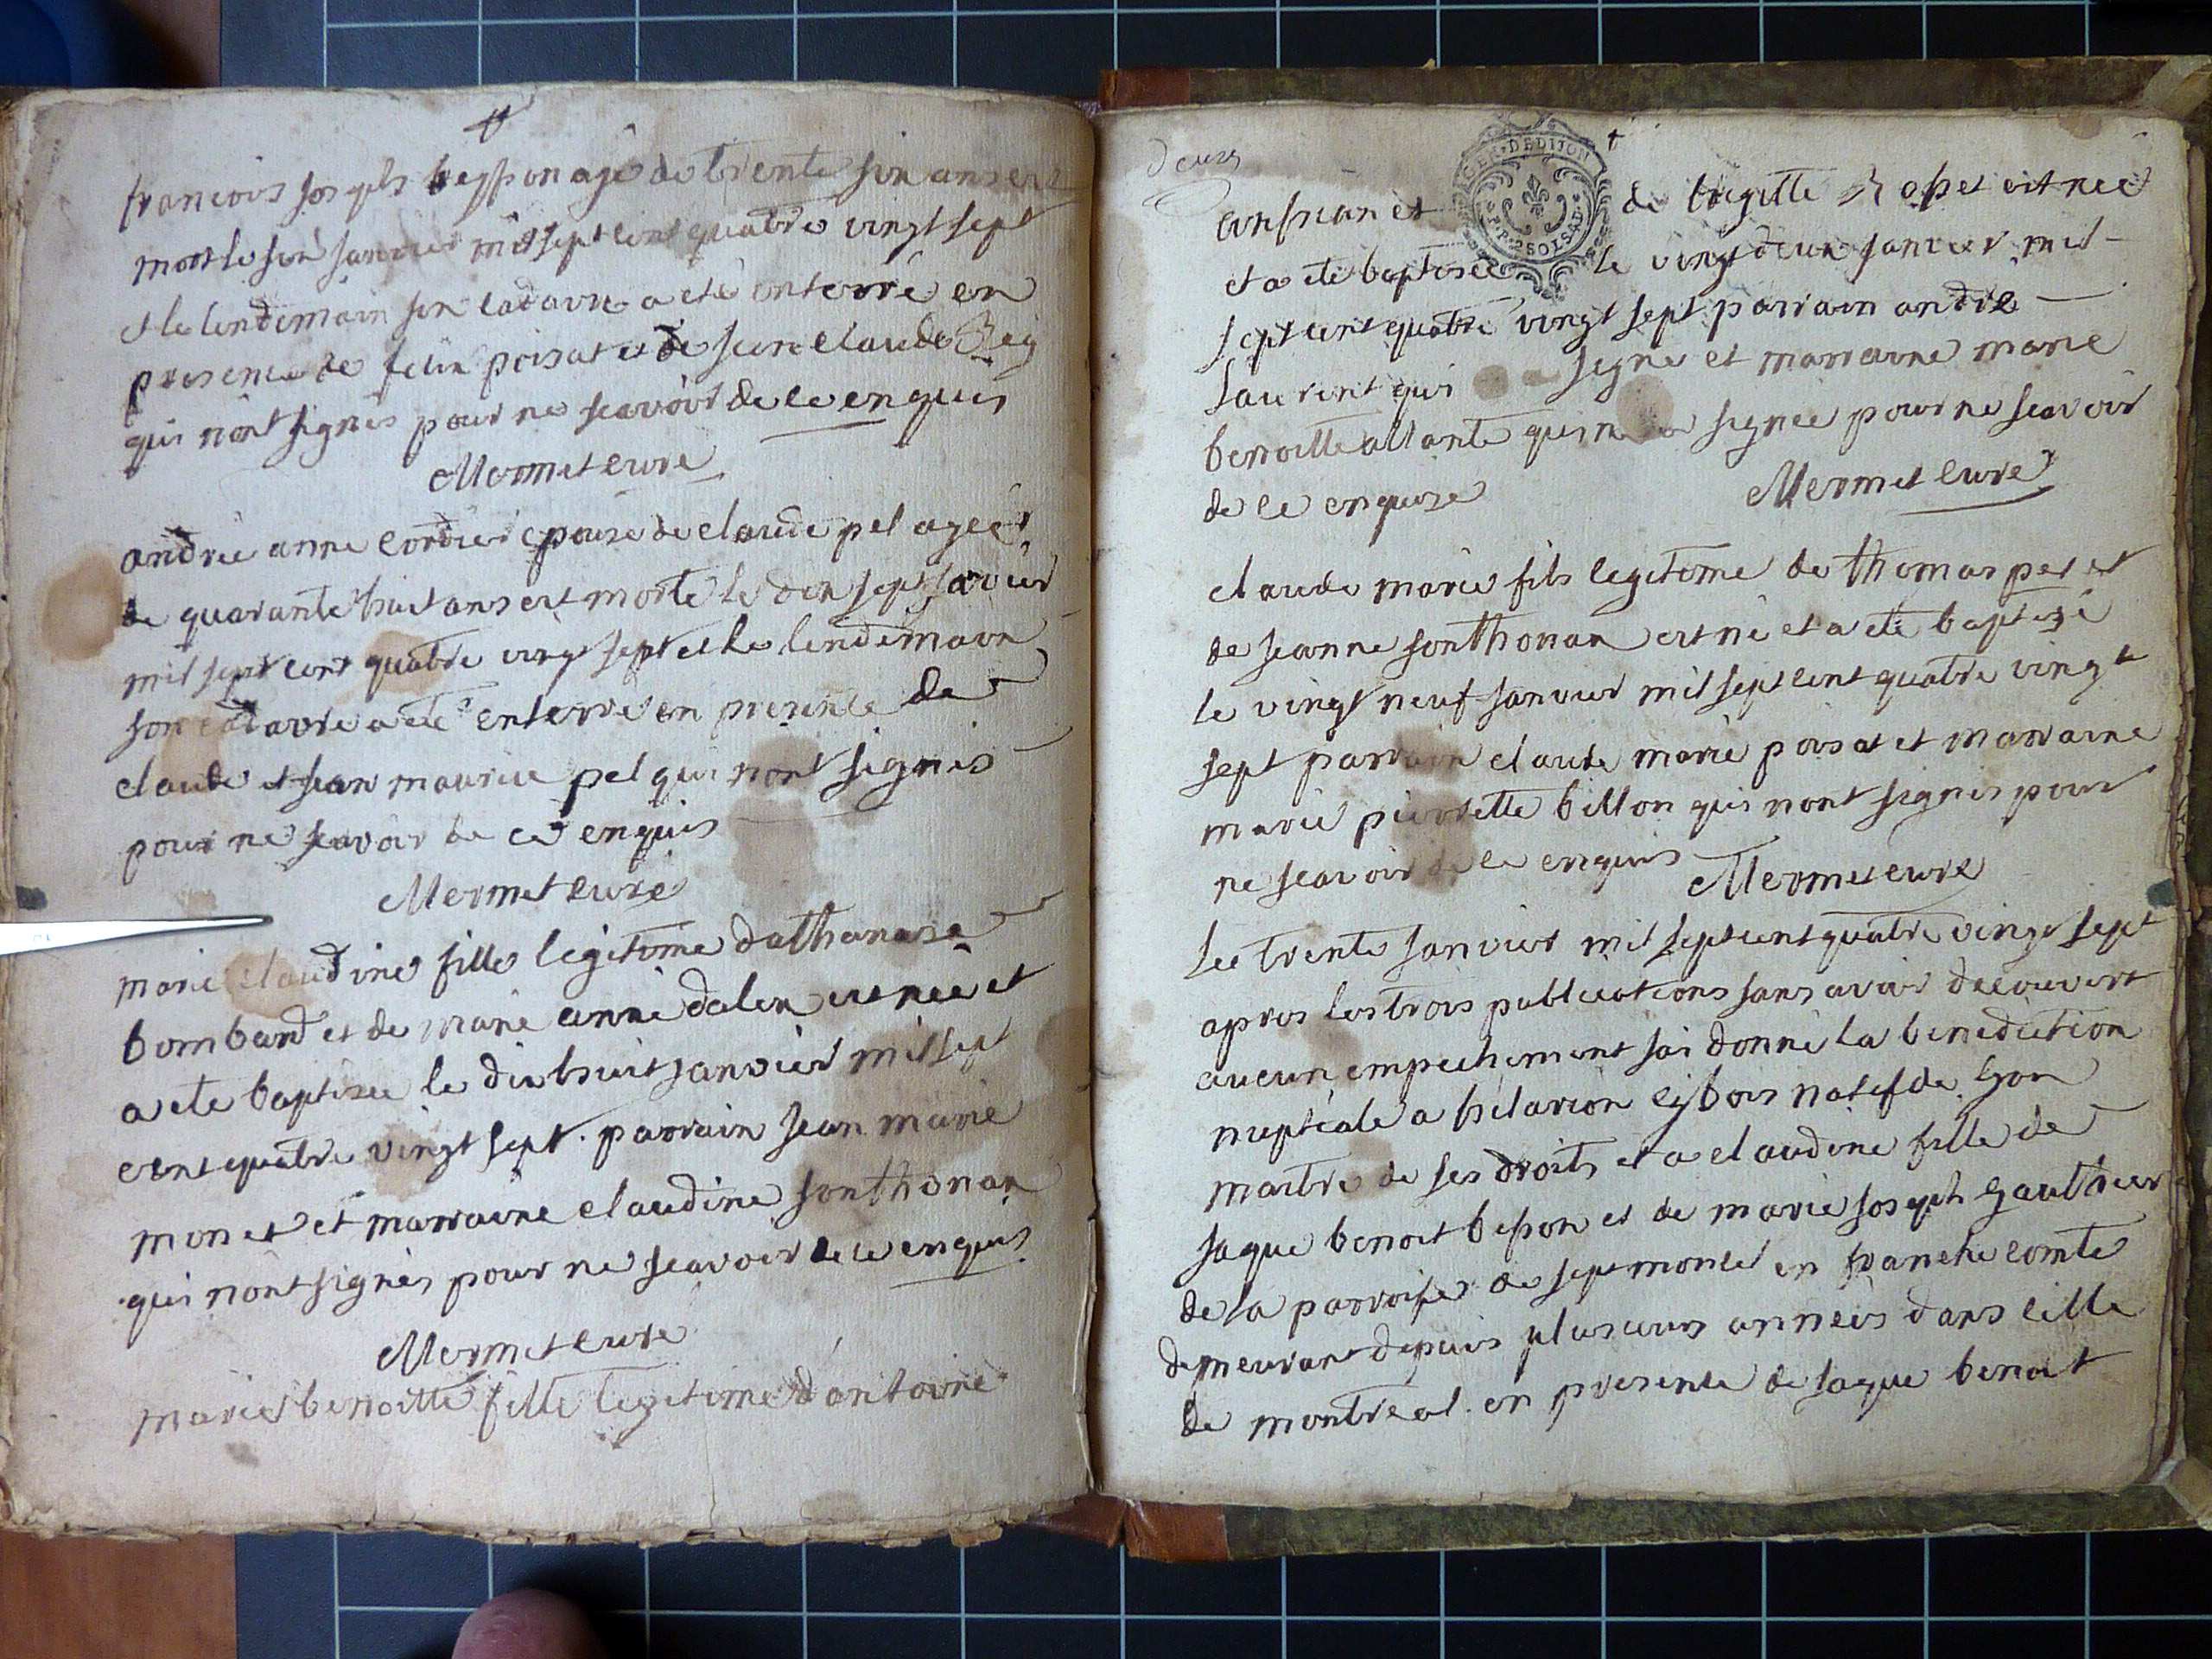 francois joseph beysson agé de trente six ans est
mort le six janvier mil sept cent quatre vingt sept
et le lendemain son cadavre a eté enterré en
presence de felix poisat et de jean claude Rey
qui n'ont signés pour ne scavoir de ce enquis
Mermet curé
andrée anne cordier epouse de claude pel agée
de quarante huit ans est morte le dix sept janvier
mil sept cent quatre vingt sept et le lendemain
son cadavre a eté enterré en presence de
claude et jean maurice pel qui n'ont signés
pour ne scavoir de ce enquis
Mermet curé
marie claudine fille legitime dathanase
bombard et de marie anne dalex est née et
a ete baptisée le dix huit janvier mil sept
cent quatre vingt sept. parrain jean marie
monet et marraine claudine sonthonax
qui n'ont signés pour ne scavoir de ce enquis
Mermet curé
marie benoitte fille legitime d'antoine
deux
DE DIJON
2 SOLS
et de brigitte est née
et a ete baptisée le vingt deux janvier mil
sept cent quatre vingt sept parrain andré
laurent qui a signé et marraine marie
benoitte allante qui n'a signée pour ne scavoir
de ce enquise
Mermet curé
claude marie fils legitime de thomas pel et
de jeanne sonthonax est né et a eté baptisé
le vingt neuf janvier mil sept cent quatre vingt
sept parrain claude marie poisat et marraine
marie pierrette billon qui n'ont signés pour
ne scavoir de ce enquis
Mermet curé
Le trente janvier mil sept cent quatre vingt sept
apres les trois publications sans avoir decouvert
aucun empechement jai donné la benediction
nuptiale a hilarion natif de Lyon
maitre de ses droits et a claudine fille de
jaque benoit besson et de marie joseph gauthier
de la parroisse de septmoncel en franche comté
demeurant depuis plusieurs années dans cille
de montreal. en presence de jaque benoit